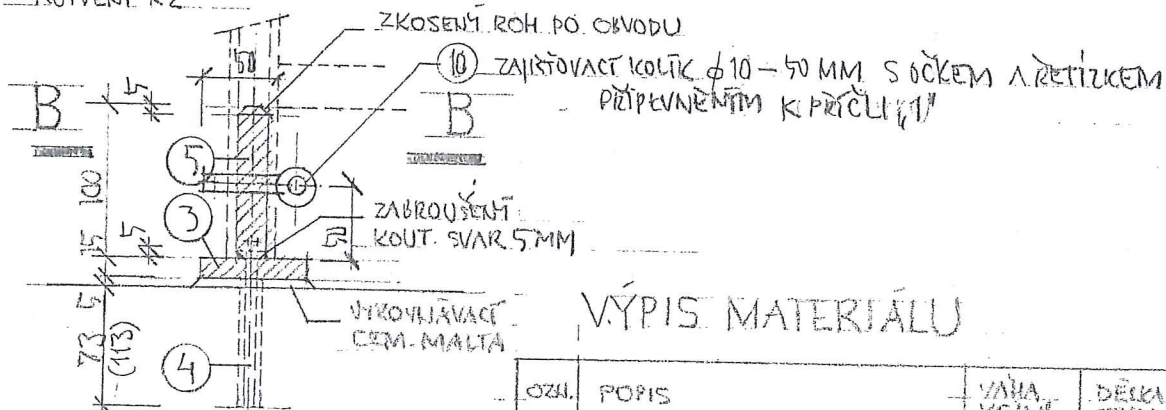 KOTVENÍ
ZKOSENÝ ROH PO OBVODU
50
10 ZAJIŠŤOVACÍ KOLÍK ϕ10-50 MM S OČKEM A ŘETÍZKEM
PŘIPEVNĚNÝM K PŘÍČLI „1"
B
5
B
5
100
3
ZABROUŠENÝ
KOUT. SVAR 5 MM
50
5
15
5
VYROVNÁVACÍ
CEM. MALTA
73
(113)
4
VÝPIS MATERIÁLU
OZN.
POPIS
VÁHA
DÉLKA